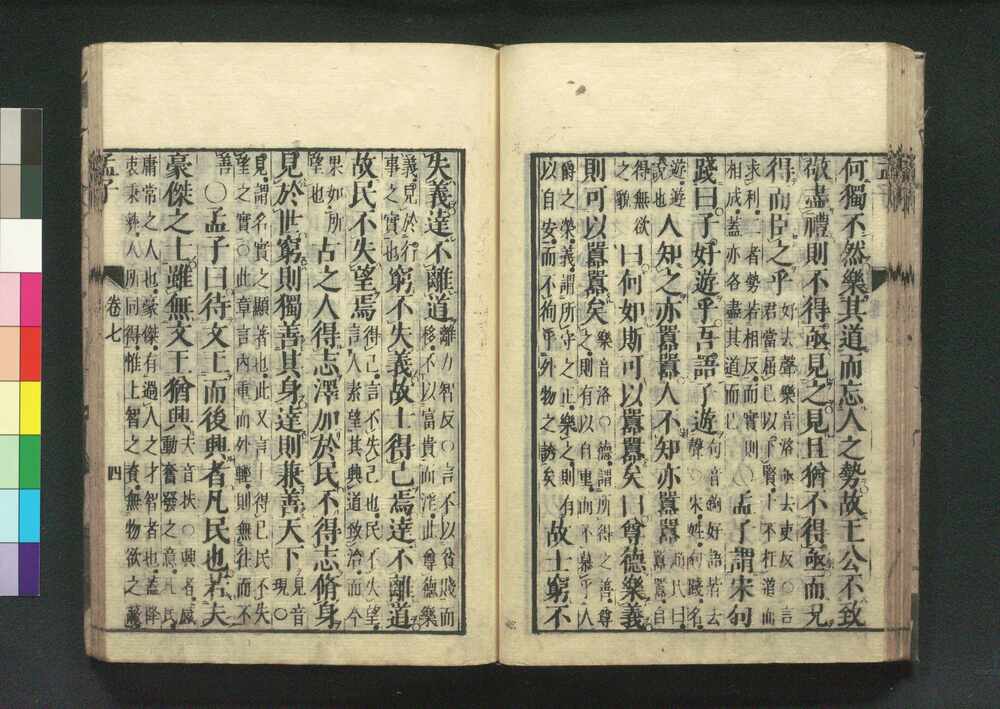 何獨不然樂其道而忘人之勢故王公不致
敬盡禮則不得亟見之見且猶不得亟而况
得而臣之乎
好去聲樂音洛亟去吏反○言
君當屈己以下賢士不枉道而
求利二者勢若相反而實則
相成蓋亦各盡其道而已
○孟子謂宋句
踐曰子好遊乎吾語子遊
句音鉤好語皆去
聲○宋姓句踐名
遊遊
說也
人知之亦囂囂人不知亦囂囂
趙氏曰
囂囂自
得無欲
之貌
曰何如斯可以囂囂矣曰尊德樂義
則可以囂囂矣
樂音洛○德謂所得之善尊
之則有以自重而不慕乎人
爵之榮義謂所守之正樂之則有
以自安而不狥乎外物之誘矣
故士窮不
失義達不離道
離力智反○言不以貧賤而
移不以富貴而淫此尊德樂
義見於行
事之實也
窮不失義故士得己焉達不離道
故民不失望焉
得己言不失己也民不失望
言人素望其興道致治而今
果如所
望也
古之人得志澤加於民不得志脩身
見於世窮則獨善其身達則兼善天下
見音
現○
見謂名實之顯著也此又言士得己民不失
望之實○此章言內重而外輕則無往而不
善
○孟子曰待文王而後興者凡民也若夫
豪傑之士雖無文王猶興
夫音扶○興者感
動奮發之意凡民
庸常之人也豪傑有過人之才智者也蓋降
衷秉彞人所同得惟上智之資無物欲之蔽
孟子
卷七
四